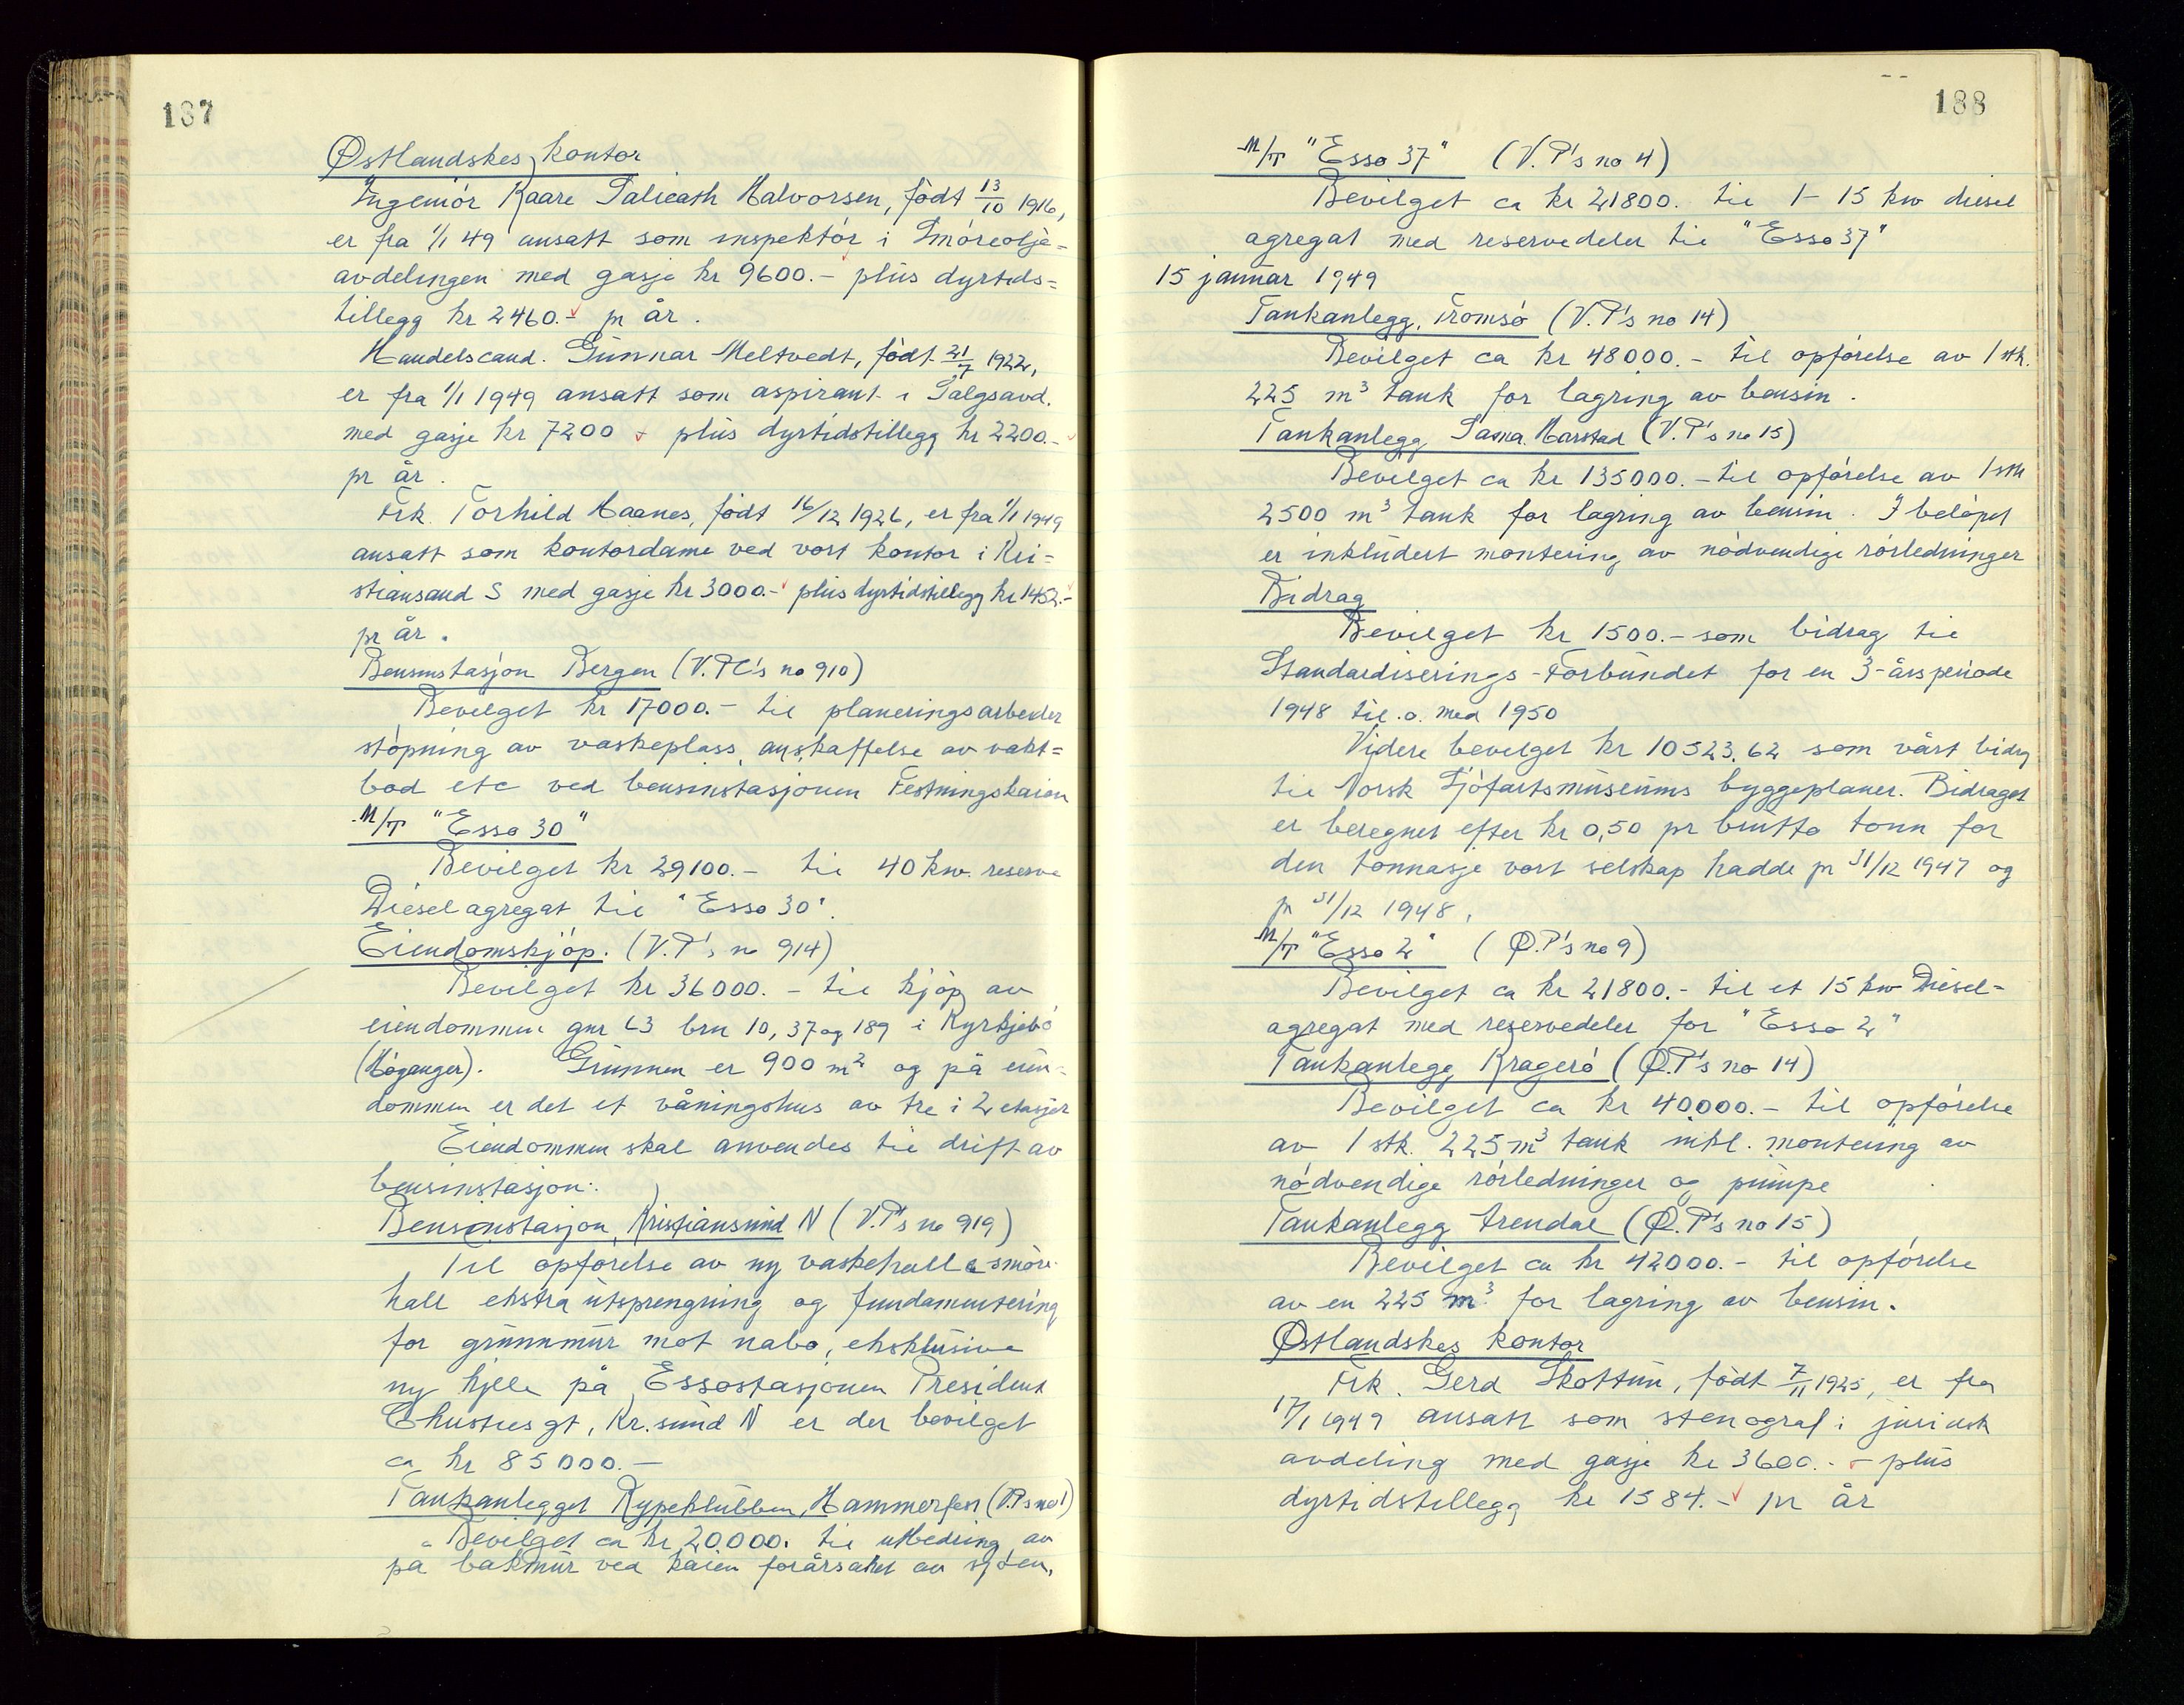 187
Østlandskes kontor
Ingeniør Kaare Salicath Halvorsen, født 13/10 1916,
er fra 1/1 49 ansatt som inspektør i Smøreolje=
avdelingen med gasje kr 9600.- plus dyrtids=
tillegg kr 2460.- pr år.
Handelscand. Gunnar Meltvedt, født 21/7 1922,
er fra 1/1 1949 ansatt som aspirant i Salgsavd.
med gasje kr 7200 - plus dyrtidstillegg kr 2200.-
pr år.
Frk. Torhild Haanes, født 16/12 1926, er fra 1/1 1949
ansatt som kontordame ved vort kontor i Kri=
stiansand S med gasje kr 3000.- plus dyrtidstillegg kr 1452.-
pr år.
Bensinstasjon Bergen (V. no 910)
Bevilget kr 17000.- til planeringsarbeider
støpning av vaskeplass, anskaffelse av vakt=
bod etc ved bensinstasjonen Festningskaien
M/T "Esso 30"
Bevilget kr 29100.- til 40 kw. reserve
Dieselagregat til "Esso 30".
Eiendomskjøp. (V.P's no 914)
Bevilget kr 36000.- til kjøp av
eiendommen gnr 63 brn 10, 37 og 189 i Kyrkjebø
(Høyanger). Grunnen er 900 m² og på eien=
dommen er det et våningshus av tre i 2 etasjer
Eiendommen skal anvendes til drift av
bensinstasjon.
Bensinstasjon, Kristiansund N (V.P's no 919)
Til opførelse av ny vaskehall & smøre
hall ekstra utsprengning og fundamentering
for grunnmur mot nabo, eksklusive
ny kjelle på Essostasjonen President
Christies gt, Kr.sund N er der bevilget
ca kr 85000.-
Tankanlegget Rypeklubben, Hammerfest (V.P's no 1)
Bevilget ca kr 20,000. til utbedring av
på bakmur ved kaien forårsaket av sjøen,
188
M/T "Esso 37" (V.P's no 4)
Bevilget ca kr 21800. til 1- 15 kw diesel
agregat med reservedeler til "Esso 37"
15 januar 1949
Tankanlegg, Tromsø (V.P's no 14)
Bevilget ca kr 48000.- til opførelse av 1 stk.
225 m³ tank for lagring av bensin.
Tankanlegg Sama. Harstad (V.P's no 15)
Bevilget ca kr 135000.- til opførelse av 1 stk
2500 m³ tank for lagring av bensin. I beløpet
er inkludert montering av nødvendige rørledninger
Bidrag
Bevilget kr 1500.- som bidrag til
Standardiserings-Forbundet for en 3-årsperiode
1948 til.o.med 1950
Videre bevilget kr 10523.62 som vårt bidrag
til Norsk Sjøfartsmuseums byggeplaner. Bidraget
er beregnet efter kr 0,50 pr brutto tonn for
den tonnasje vort selskap hadde pr 31/12 1947 og
pr 31/12 1948.
M/T "Esso 2" (Ø.P's no 9)
Bevilget ca kr 21800.- til et 15 kw Diesel-
agregat med reservedeler for "Esso 2"
Tankanlegg Kragerø (Ø.P's no 14)
Bevilget ca kr 40.000.- til opførelse
av 1 stk. 225 m³ tank inkl. montering av
nødvendige rørledninger og pumpe
Tankanlegg Arendal (Ø.P's no 15)
Bevilget ca kr 42000.- til opførelse
av en 225 m³ for lagring av bensin.
Østlandskes kontor
Frk. Gerd Skottun, født 7/11 1925, er fra
17/1 1949 ansatt som stenograf i juridisk
avdeling med gasje kr 3600.- plus
dyrtidstillegg kr 1584.- pr år